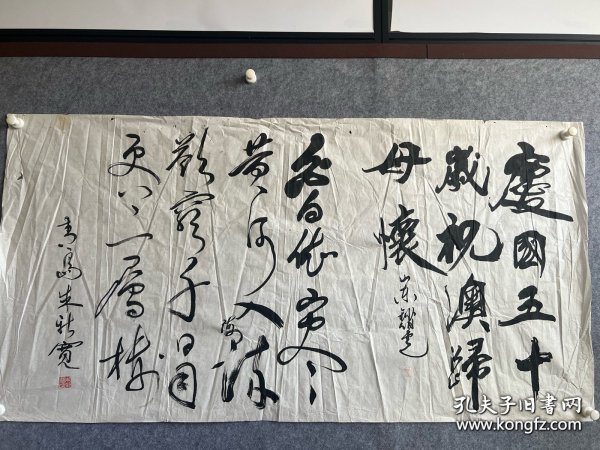 慶國五十
歲祝澳歸
母懷
山东
白日依山尽
黄河入海流
欲窮千里目
更上一層楼
青島朱
孔夫子旧书网
www.kongfz.com